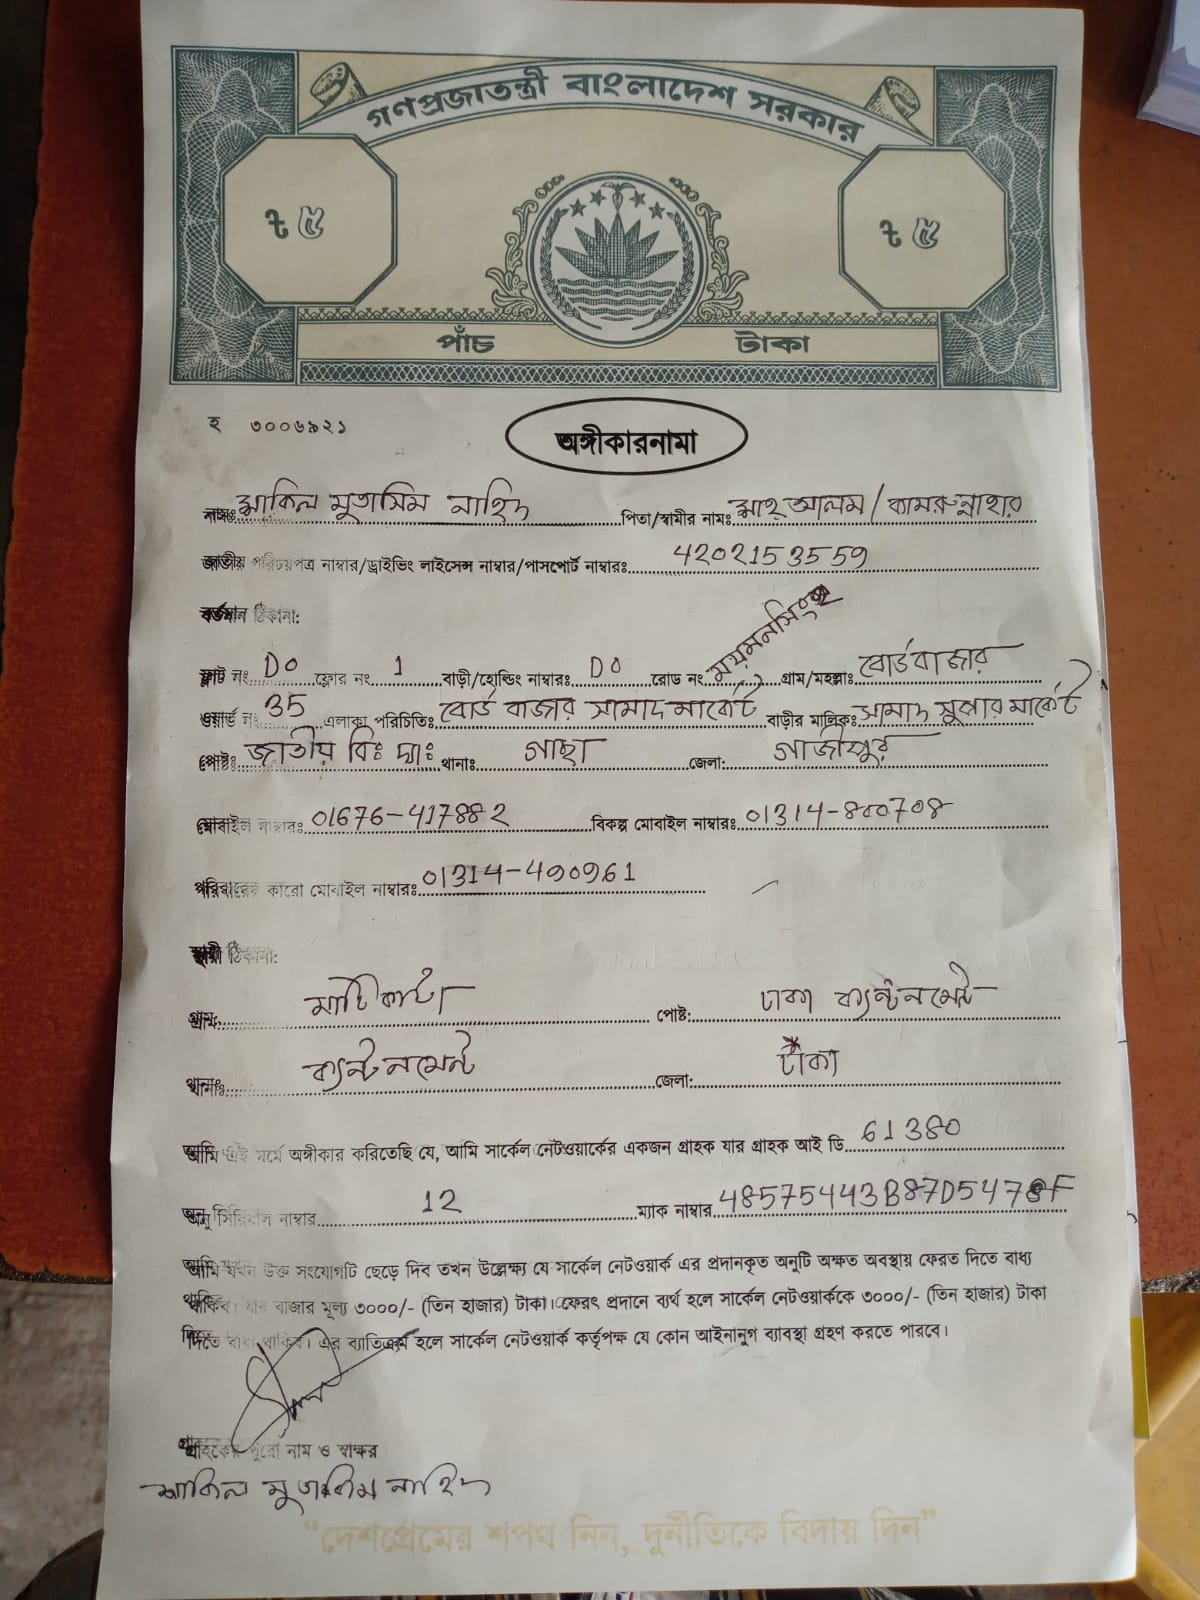 গণপ্রজাতন্ত্রী বাংলাদেশ সরকার
৳ ৫ ৳ ৫
পাঁচ টাকা
হ ৩০০৬৯২১
অঙ্গীকারনামা
নামঃ শাকিল মুতাসিম নাহিদ পিতা/স্বামীর নামঃ শাহ্ আলম / কামরুন্নাহার
জাতীয় পরিচয়পত্র নাম্বার/ড্রাইভিং লাইসেন্স নাম্বার/পাসপোর্ট নাম্বারঃ 4202153559
বর্তমান ঠিকানা:
ফ্লাট নং D0 ফ্লোর নং 1 বাড়ী/হোল্ডিং নাম্বারঃ D0 রোড নং ময়মনসিংহ গ্রাম/মহল্লাঃ বোর্ড বাজার
ওয়ার্ড নং 35 এলাকা পরিচিতিঃ বোর্ড বাজার সামাদ মার্কেট বাড়ীর মালিকঃ সামাদ সুপার মার্কেট
পোষ্টঃ জাতীয় বিঃ দ্যাঃ থানাঃ গাছা জেলা: গাজীপুর
মোবাইল নাম্বারঃ 01676-417882 বিকল্প মোবাইল নাম্বারঃ 01314-800708
পরিবারের কারো মোবাইল নাম্বারঃ 01314-490961
স্থায়ী ঠিকানা:
গ্রাম: মাটিকাটা পোষ্ট: ঢাকা ক্যান্টনমেন্ট
থানাঃ ক্যান্টনমেন্ট জেলা: ঢাকা
আমি এই মর্মে অঙ্গীকার করিতেছি যে, আমি সার্কেল নেটওয়ার্কের একজন গ্রাহক যার গ্রাহক আই ডি 61380
অনু সিরিয়াল নাম্বার 12 ম্যাক নাম্বার 48575443B87D5478F
আমি যখন উক্ত সংযোগটি ছেড়ে দিব তখন উল্লেক্ষ্য যে সার্কেল নেটওয়ার্ক এর প্রদানকৃত অনুটি অক্ষত অবস্থায় ফেরত দিতে বাধ্য
থাকিব। যার বাজার মূল্য ৩০০০/- (তিন হাজার) টাকা। ফেরৎ প্রদানে ব্যর্থ হলে সার্কেল নেটওয়ার্ককে ৩০০০/- (তিন হাজার) টাকা
দিতে বাধ্য থাকিব। এর ব্যাতিক্রম হলে সার্কেল নেটওয়ার্ক কর্তৃপক্ষ যে কোন আইনানুগ ব্যাবস্থা গ্রহণ করতে পারবে।
গ্রাহকের পুরো নাম ও স্বাক্ষর
শাকিল মুতাসিম নাহিদ
“দেশপ্রেমের শপথ নিন, দুর্নীতিকে বিদায় দিন”